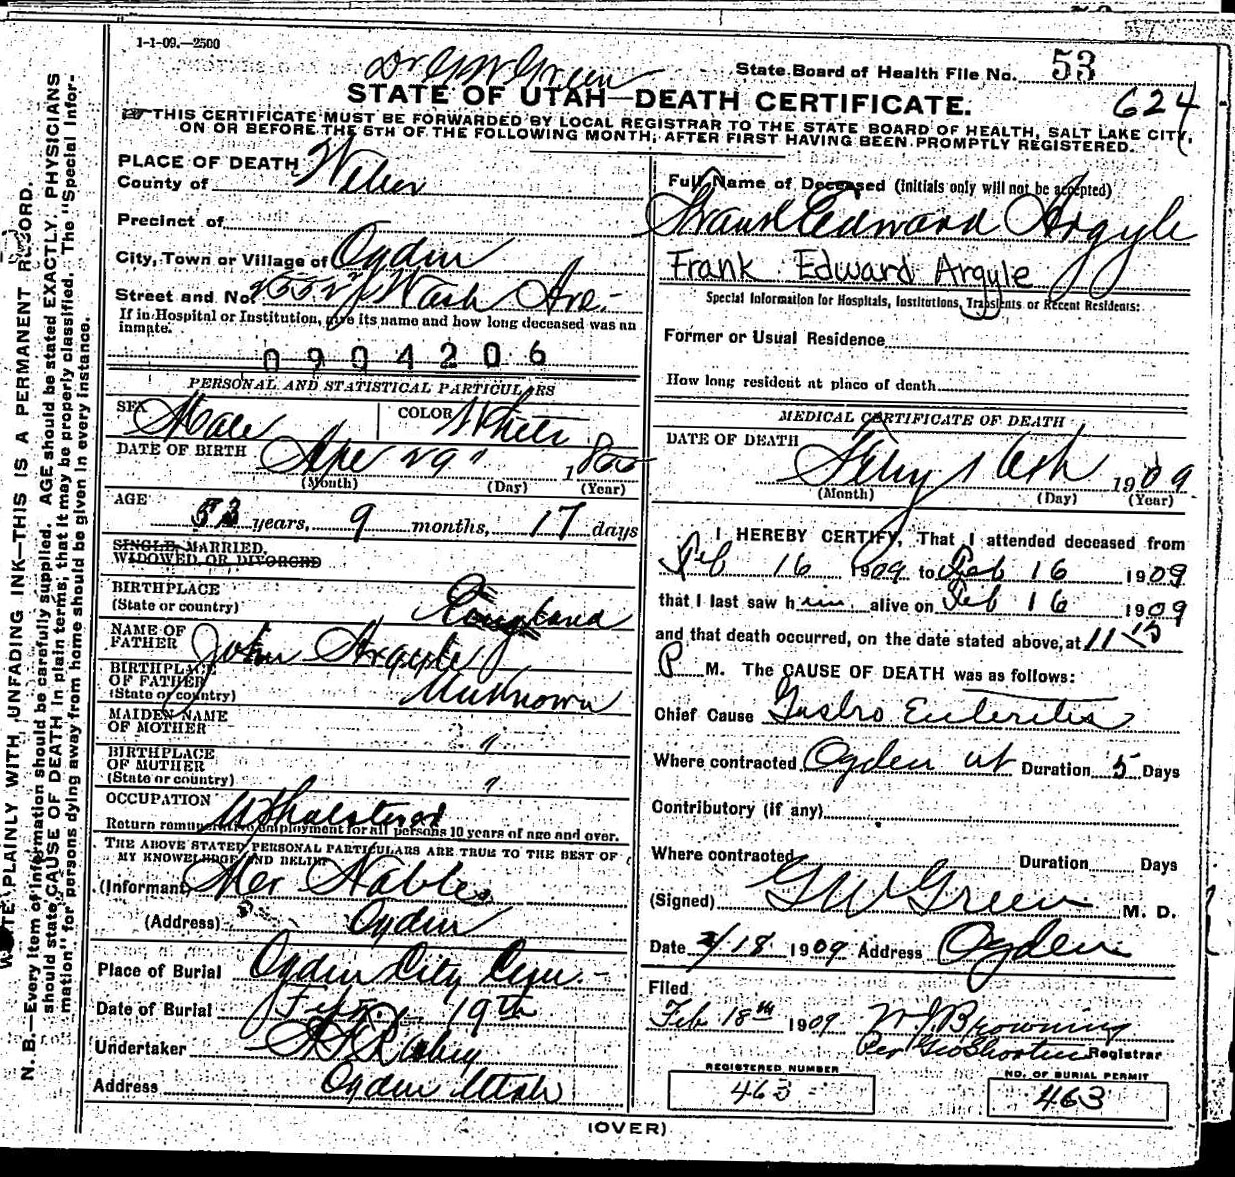 1-1-09.—2500
Dr G W Green
State Board of Health File No. 53
STATE OF UTAH—DEATH CERTIFICATE.
624
THIS CERTIFICATE MUST BE FORWARDED BY LOCAL REGISTRAR TO THE STATE BOARD OF HEALTH, SALT LAKE CITY,
ON OR BEFORE THE 5TH OF THE FOLLOWING MONTH, AFTER FIRST HAVING BEEN PROMPTLY REGISTERED.
WRITE PLAINLY WITH UNFADING INK—THIS IS A PERMANENT RECORD.
N. B.—Every item of information should be carefully supplied. AGE should be stated EXACTLY. PHYSICIANS
should state CAUSE OF DEATH in plain terms, that it may be properly classified. The "Special Infor-
mation" for persons dying away from home should be given in every instance.
PLACE OF DEATH
County of Weber
Precinct of
City, Town or Village of Ogden
Street and No. Wash Ave.
If in Hospital or Institution, give its name and how long deceased was an
inmate.
0904206
PERSONAL AND STATISTICAL PARTICULARS
SEX Male COLOR White
DATE OF BIRTH 29"
(Month) (Day) (Year)
AGE
years, 9 months, 17 days
SINGLE, MARRIED,
WIDOWED, OR DIVORCED
BIRTHPLACE
(State or country) England
NAME OF
FATHER John Argyle
BIRTHPLACE
OF FATHER
(State or country) Unknown
MAIDEN NAME
OF MOTHER "
BIRTHPLACE
OF MOTHER
(State or country) "
OCCUPATION Upholsterer
Return remunerative employment for all persons 10 years of age and over.
THE ABOVE STATED PERSONAL PARTICULARS ARE TRUE TO THE BEST OF
MY KNOWLEDGE AND BELIEF
(Informant)
(Address) Ogden
Place of Burial Ogden City Cem.
Date of Burial 19th
Undertaker
Address Ogden Utah
Full Name of Deceased (Initials only will not be accepted)
Frank Edward Argyle
Frank Edward Argyle
Special Information for Hospitals, Institutions, Transients or Recent Residents:
Former or Usual Residence
How long resident at place of death
MEDICAL CERTIFICATE OF DEATH
DATE OF DEATH
Feby 16th 1909
(Month) (Day) (Year)
I HEREBY CERTIFY, That I attended deceased from
Feb 16 1909 to Feb 16 1909
that I last saw him alive on Feb 16 1909
and that death occurred, on the date stated above, at 11 15
P M. The CAUSE OF DEATH was as follows:
Chief Cause Gastro Enteritis
Where contracted Ogden Ut Duration 5 Days
Contributory (if any)
Where contracted Duration Days
(Signed) G W Green M. D.
Date 2/18 1909 Address Ogden
Filed
Feb 18th 1909 Browning
Per Geo Shorten Registrar
REGISTERED NUMBER
463
NO. OF BURIAL PERMIT
463
(OVER)